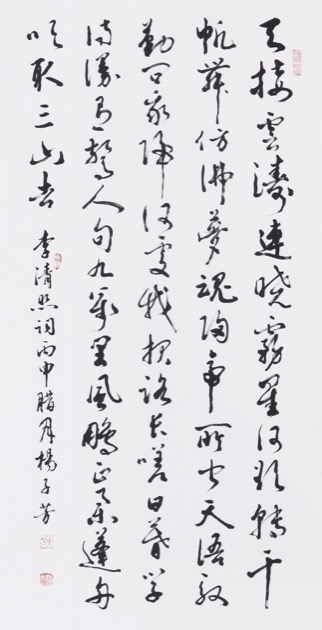 天接雲濤連曉霧星河欲轉千
帆舞仿佛夢魂歸帝所聞天語殷
勤問我歸何處我報路長嗟日暮學
詩謾有驚人句九萬里風鵬正舉蓬舟
吹取三山去 李清照詞丙申臘月楊子芳